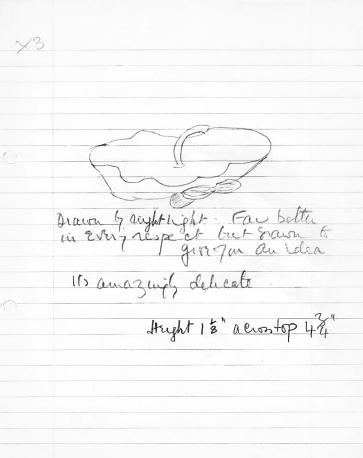 X3
Drawn by nightlight. Far better
in every respect but drawn to
give you an idea
Its amazingly delicate
Height 1 1/8" across top 4 3/4"